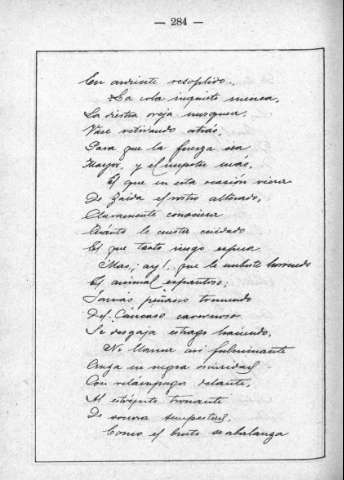 — 284 —
En ardiente resoplido.
La cola inquieto menea,
La diestra oreja mosquea,
Vase retirando atrás,
Para que la fuerza sea
Mayor, y el ímpetu más.
El que en esta ocasión viera
De Zaida el rostro alterado,
Claramente conociera
Cuánto le cuesta cuidado
El que tanto riesgo espera.
Mas, ¡ay!, que le embiste horrendo
El animal espantoso;
Jamás peñasco tremendo
Del Cáucaso cavernoso
Se desgaja estrago haciendo,
Ni llama así fulminante
Cruza en negra oscuridad
Con relámpago delante,
Al estrépito tronante
De sonora tempestad,
Como el bruto se abalanza